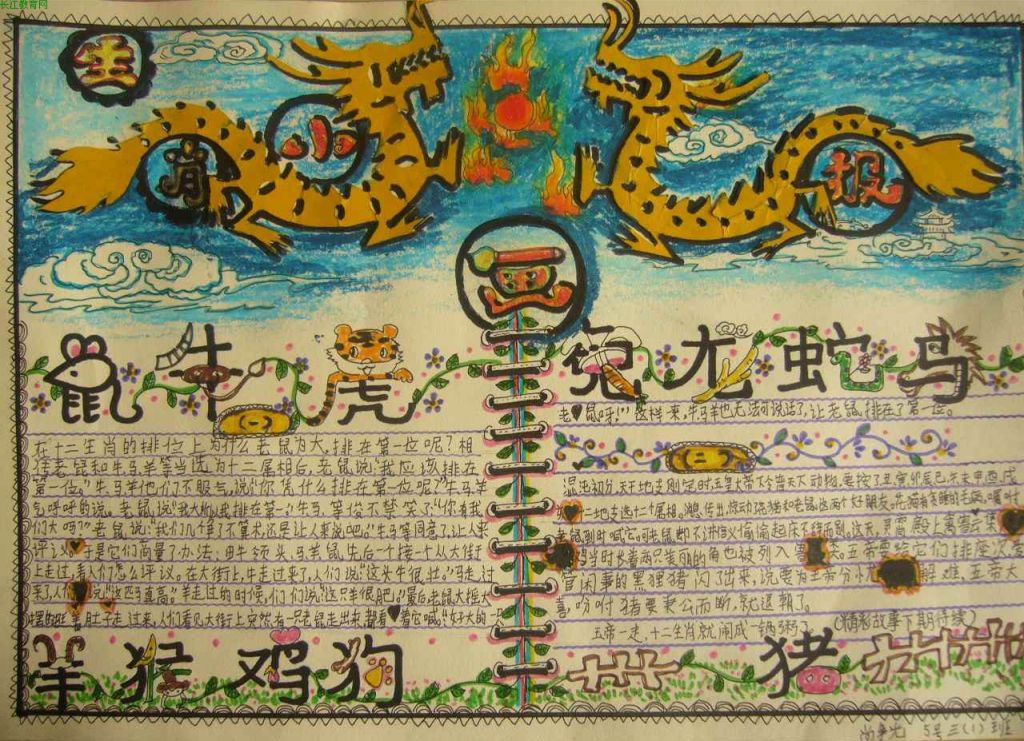 长江教育网
生
肖
小
画
报
鼠 牛 虎
在十二生肖的排位上为什么老鼠为大,排在第一位呢?相
传老鼠和牛马羊等当选为十二属相后,老鼠说:"我应该排在
第一位。"牛马羊他们不服气,说:"你凭什么排在第一位呢?"牛马羊
气呼呼的说。老鼠说:"我大
们大吗?"老鼠说:"我们几个算了不算术,还是让人来说吧。"牛马等同意了让人来
评议。于是它们商量了办法:由牛领头,马羊鼠先后一个接一个从大街
上走过,看人们怎么评议。在大街上,牛走过来了,人们说:"这头牛很壮。"马走过
来了,人们说"这匹马真高。"羊走过的时候,人们说:"这只羊很肥。"最后老鼠大摇大
摆的 肚子走过来,人们看见大街上突然有一只老鼠走出来 着它喊:"好大的
羊 猴 鸡 狗
兔 龙 蛇 马
老鼠呀!"这样一来,牛马羊也无法可说话了,让老鼠排在了第一位。
混沌初分,天干地支刚定时,玉皇大帝下令普天下动物,要按子丑寅卯辰巳午未申酉戌
二地支选十二个属相。消息传出,惊动
老鼠到时喊它。可老鼠却不讲信义偷偷起床不辞而别。这天,灵霄殿上
当时长着两只美丽的角也被列入 玉帝要给它们排座次
管闲事的黑狸猪闪了出来,说要为玉帝分 解难,玉帝大
喜,吩咐猪要秉公而断,就退朝了。
玉帝一走,十二生肖就闹成一锅粥了。(精彩故事下期待续)
猪
5号 三(1)班